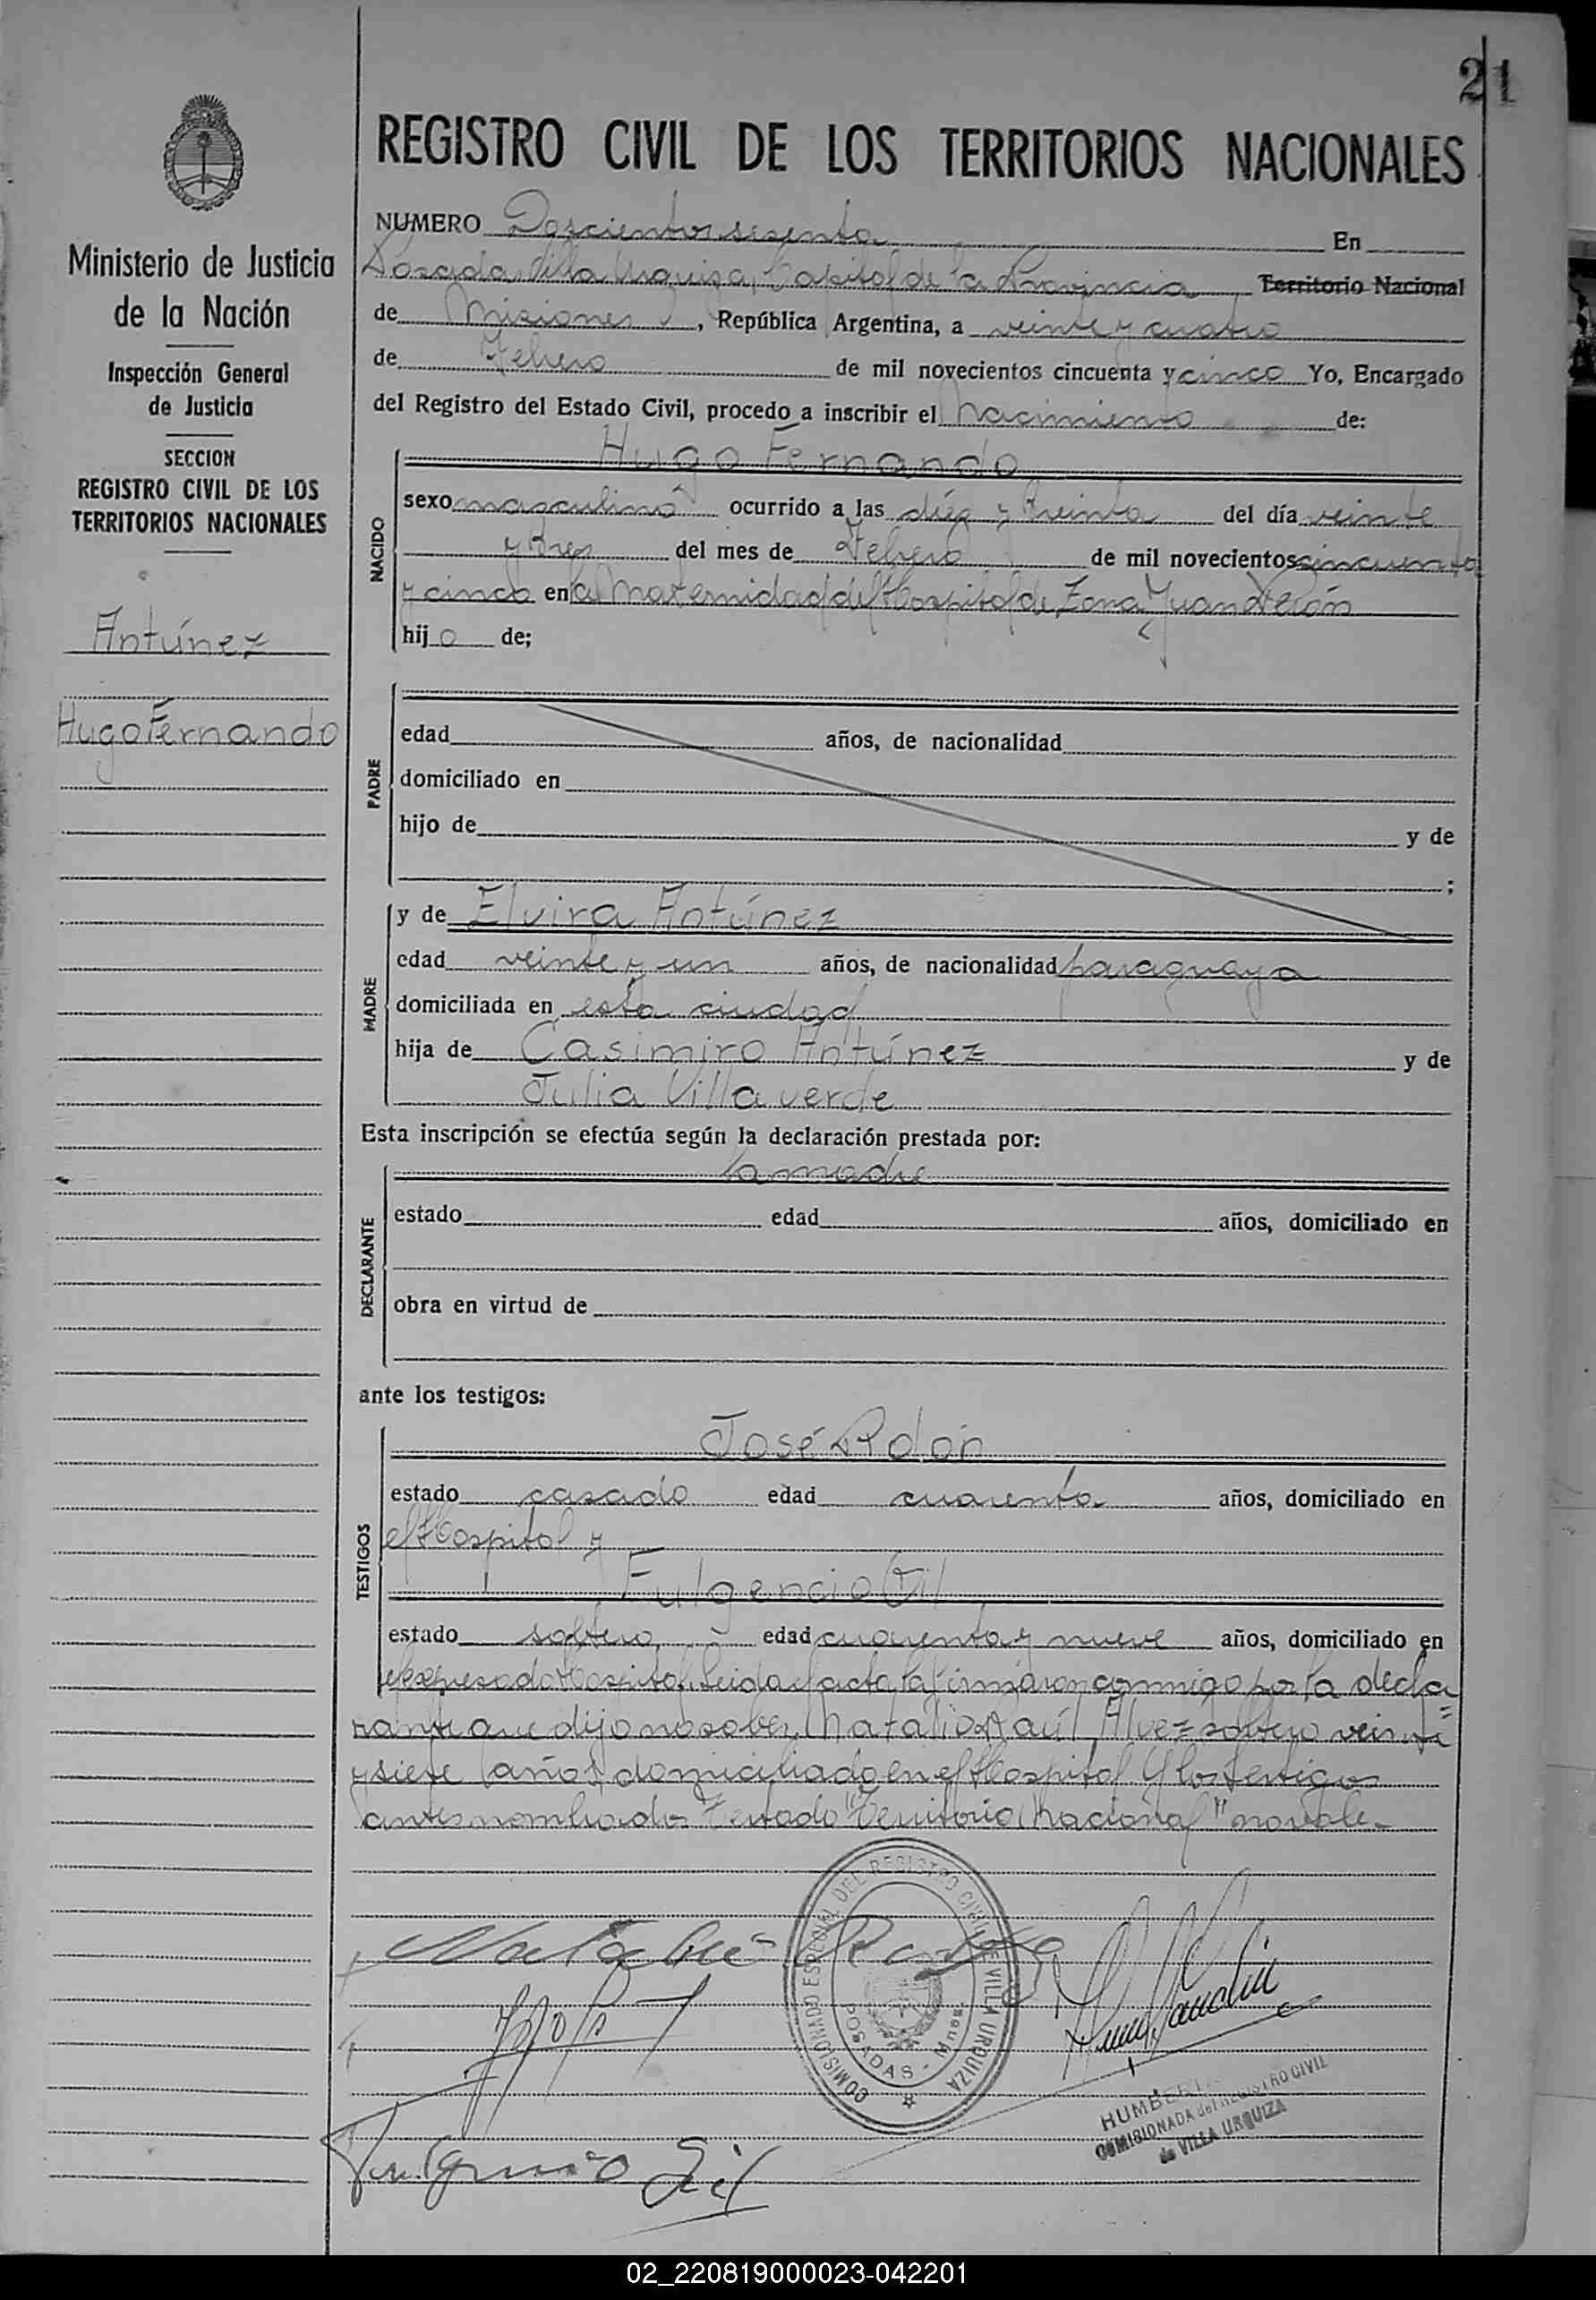 21
REGISTRO CIVIL DE LOS TERRITORIOS NACIONALES
Ministerio de Justicia
de la Nación
Inspección General
de Justicia
SECCION
REGISTRO CIVIL DE LOS
TERRITORIOS NACIONALES
Antúnez
Hugo Fernando
NUMERO Doscientos sesenta En
Posadas, Villa Urquiza, Capital de la Provincia Territorio Nacional
de Misiones, República Argentina, a veinte y cuatro
de Febrero de mil novecientos cincuenta y cinco Yo, Encargado
del Registro del Estado Civil, procedo a inscribir el Nacimiento de:
NACIDO
Hugo Fernando
sexo masculino ocurrido a las diez y treinta del día veinte
y tres del mes de Febrero de mil novecientos cincuenta
y cinco en la Maternidad del Hospital de Zona Juan Perón
hijo de;
PADRE
edad años, de nacionalidad
domiciliado en
hijo de y de
;
MADRE
y de Elvira Antúnez
edad veinte y un años, de nacionalidad paraguaya
domiciliada en esta ciudad
hija de Casimiro Antúnez y de
Julia Villaverde
Esta inscripción se efectúa según la declaración prestada por:
DECLARANTE
la madre
estado edad años, domiciliado en
obra en virtud de
ante los testigos:
TESTIGOS
José
estado casado edad cuarenta años, domiciliado en
el Hospital y
Fulgencio Gil
estado soltero, edad cuarenta y nueve años, domiciliado en
el expresado Hospital. Leida el acta la firmaron conmigo por la decla
rante que dijo no saber, Natalio Raúl Alvez soltero veinte
y siete años domiciliado en el Hospital y los testigos
antes nombrados. Testado "Territorio Nacional" no vale.-
COMISIONADO ESPECIAL DEL REGISTRO CIVIL DE VILLA URQUIZA
POSADAS - Mnes.
Fulgencio Gil
COMISIONADA del REGISTRO CIVIL
de VILLA URQUIZA
02_220819000023-042201